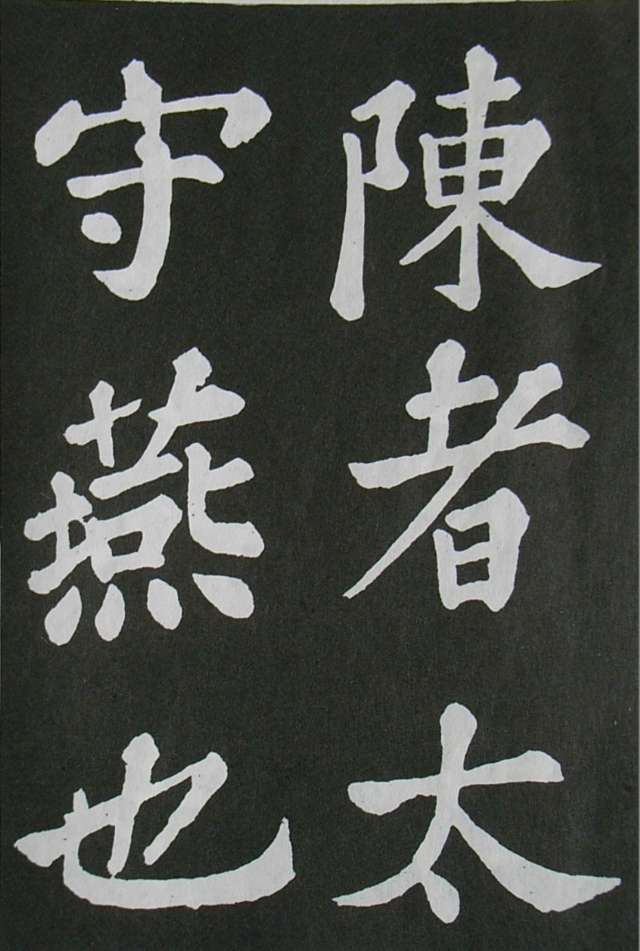 陳者太
守燕也